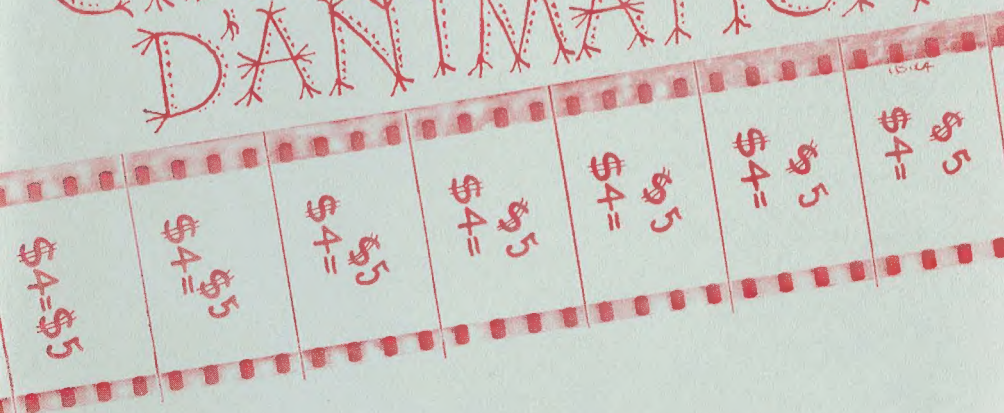 D'ANIMATION
$4=$5
$4=$5
$4=
$5
$4=
$5
$4=
$5
$4=
$5
$4=
$5